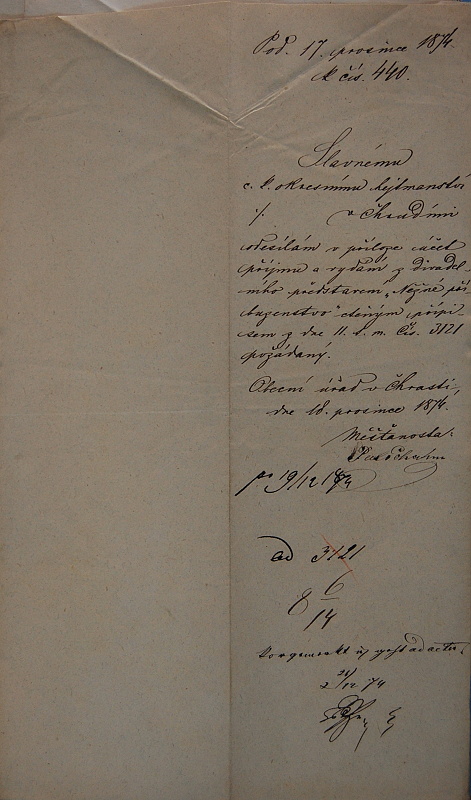 Pod. 17. prosince 1874.
k čís. 440.
Slavnému
c. k. okresnímu hejtmanství
%. v Chrudimi
odesílám v příloze účet
příjmu a vydání z divadel
ního představení „Něžné pří
buzenstvo“ ctěným přípi-
sem z dne 11. t. m. čís. 3121
požádaný.
Obecní úřad v Chrasti,
dne 18. prosince 1874.
Měšťanosta:
19/12 1874
ad 3121
8 6/14
vorgemerkt ad acta.
12 74